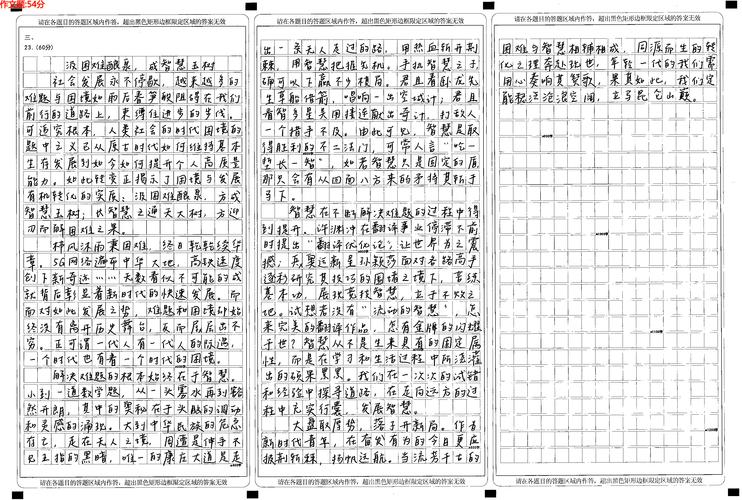 作文题:54分
请在各题目的答题区域内作答,超出黑色矩形边框限定区域的答案无效
三、
23.(60分)
汲困难酿泉,成智慧玉树
社会发展永不停歇,越来越多的
难题与困境如雨后春笋般阻碍在我们
前行的道路上,束缚住进步的步伐。
可追究根本,人类社会的时代困境的
题中之义已从原古时代如何维持基本
生存发展到如今如何提升个人高质量
能力。如此转变正揭示了困境与发展
有机转化的实质:汲困难酿泉,方成
智慧玉树;长智慧之通天大树,方迎
刃而解困难之果。
栉风沐雨乘困难,终日轮轮续华
章。5G网络遍布中华大地,高铁速度
创下新奇迹……无数看似不可能的成
就背后彰显着新时代的快速发展。而
面对如此发展之势,难题和困境却始
终没有离开历史舞台,反而层层出不
穷。正可谓一代人有一代人的际遇,
一个时代也有着一个时代的困境。
解决难题的根本始终在于智慧。
小到一道数学题,从一头雾水再到豁
然开朗,其中的奥秘在于头脑的调动
和灵感的涌现。大到中华民族的危急
存亡,走在无人之境,周遭是伸手不
见五指的黑暗,唯一的康庄大道是走
请在各题目的答题区域内作答,超出黑色矩形边框限定区域的答案无效
请在各题目的答题区域内作答,超出黑色矩形边框限定区域的答案无效
出一条无人走过的路,用热血斩开荆
棘,用智慧把握先机。手握智慧之子,
确可以下赢不少棋局。君且看卧龙先
生草船借箭,唱响一出空城计;君且
看智多星吴用接连献出奇计,打敌人
一个措手不及。由此可见,智慧是取
得胜利的不二法门,可常人言“吃一
堑长一智”,如若智慧只是固定的盾
那只会有从四面八方来的矛将其斩于
马下。
智慧在不断解决难题的过程中得
到提升。许渊冲在翻译事业停滞不前
时提出“翻译优化论”让世界为之震
撼;巴奥运新星孙颖莎面对各路高手
逐利研究其技巧的困境之境下,苦练
基本功,展现竞技智慧,立于不败之
地。试想若没有“流动的智慧”,怎
来完美的翻译作品,怎有金牌的闪耀
于世?智慧从不是生来具有的固定属
性,而是在学习和生活过程中所浇灌
出的硕果累累。我们在一次次的试错
和经验中探寻道路,在走向远方的过
程中充实行囊、发展智慧。
大鱼取席势,落子开新局。作为
新时代青年,在奋发有为的今日更应
披荆斩棘,扬帆远航。当流芳千古的
请在各题目的答题区域内作答,超出黑色矩形边框限定区域的答案无效
请在各题目的答题区域内作答,超出黑色矩形边框限定区域的答案无效
困难与智慧相辅相成,同源而生的转
化之理奔赴现世,年轻一代的我们需
用心奏响其赞歌,果真如此,我们定
能视泾沧浪空阔,立马昆仑山巅。
请在各题目的答题区域内作答,超出黑色矩形边框限定区域的答案无效